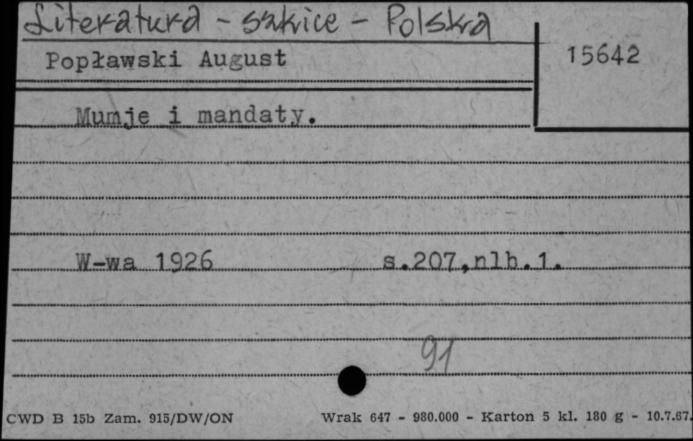 Literatura - szkice - Polska
Popławski August
15642
Mumje i mandaty.
W-wa 1926 s.207,nlb.1.
91
CWD B 15b Zam. 915/DW/ON Wrak 647 - 980.000 - Karton 5 kl. 180 g - 10.7.67.